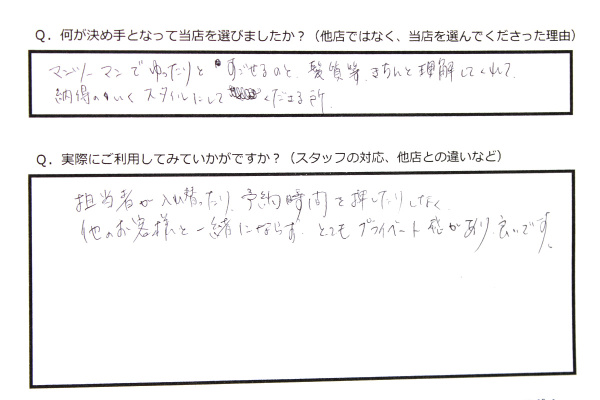 Q．何が決め手となって当店を選びましたか？（他店ではなく、当店を選んでくださった理由）
マンツーマンでゆったりとすごせるのと、髪質等、きちんと理解してくれて、
納得のいくスタイルにしてくださる所
Q．実際にご利用してみていかがですか？（スタッフの対応、他店との違いなど）
担当者が入れ替ったり、予約時間を押したりしなく、
他のお客様と一緒にならず、とてもプライベート感があり、良いです。